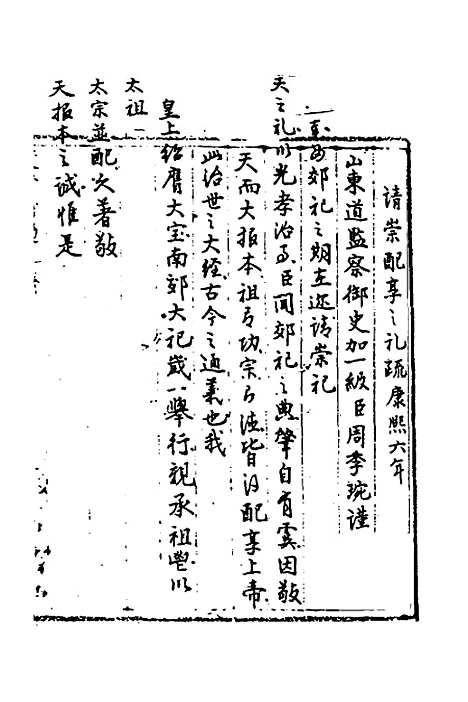 请崇配享之礼疏康熙六年
山東道監察御史加一級臣周季琬謹
奏为郊祀之期在迩请崇祀
天之礼以光孝治事臣闻郊祀之典肇自有虞因敬
天而大报本祖有功宗有德皆得配享上帝
此治世之大经古今之通义也我
皇上缵膺大宝南郊大祀岁一舉行视承祖鬯以
太祖
太宗並配久著敬
天报本之诚惟是